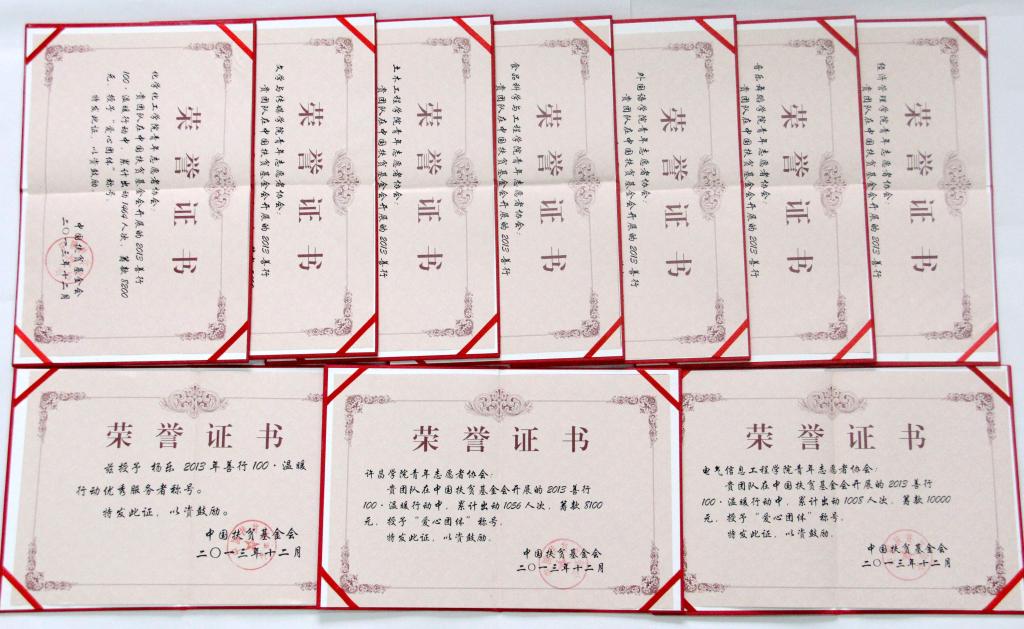 荣誉证书
化学化工学院青年志愿者协会:
贵团队在中国扶贫基金会开展的2013善行
100·温暖行动中,累计出动1494人次,募款8200
元,授予“爱心团体”称号。
特发此证,以资鼓励。
中国扶贫基金会
二〇一三年十二月
荣誉证书
文学与传媒学院青年志愿者协会:
贵团队在中国扶贫基金会开展的2013善行
荣誉证书
土木工程学院青年志愿者协会:
贵团队在中国扶贫基金会开展的2013善行
荣誉证书
食品科学与工程学院青年志愿者协会:
贵团队在中国扶贫基金会开展的2013善行
荣誉证书
外国语学院青年志愿者协会:
贵团队在中国扶贫基金会开展的2013善行
荣誉证书
音乐舞蹈学院青年志愿者协会:
贵团队在中国扶贫基金会开展的2013善行
荣誉证书
经济管理学院青年志愿者协会:
贵团队在中国扶贫基金会开展的2013善行
荣誉证书
兹授予 杨乐 2013年善行100·温暖
行动优秀服务者称号。
特发此证,以资鼓励。
中国扶贫基金会
二〇一三年十二月
荣誉证书
许昌学院青年志愿者协会:
贵团队在中国扶贫基金会开展的2013善行
100·温暖行动中,累计出动1056人次,募款8100
元,授予“爱心团体”称号。
特发此证,以资鼓励。
中国扶贫基金会
二〇一三年十二月
荣誉证书
电气信息工程学院青年志愿者协会:
贵团队在中国扶贫基金会开展的2013善行
100·温暖行动中,累计出动1008人次,募款10000
元,授予“爱心团体”称号。
特发此证,以资鼓励。
中国扶贫基金会
二〇一三年十二月